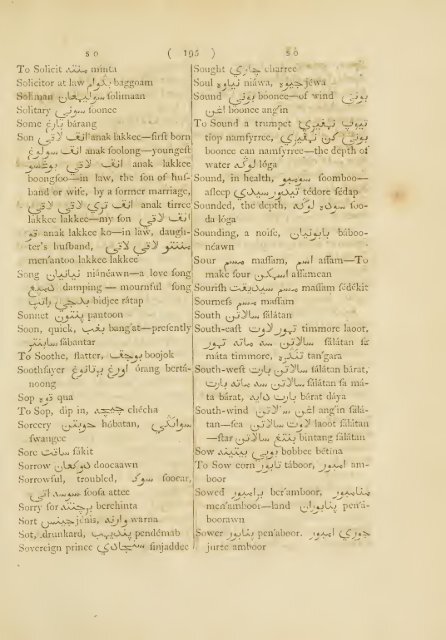 S O ( 195 ) S O
To Solicit منتد minta
Solicitor at law بڬوام baggoam
Soliman سوليهمان solimaan
Solitary سوني soonee
Some بارڠ bárang
Son انق لاقي anak lakkee—first born
انق سولوڠ anak soolong—youngest
انق لاقي anak lakkee
boongsoo—in law, the son of hus-
band or wife, by a former marriage,
انق تري لاقي لاقي anak tirree
lakkee lakkee—my son انق لاقي
قو anak lakkee ko—in law, daugh-
ter's husband, منتتو لاقي لاقي
men'antoo lakkee lakkee
Song نيانين niánéawn—a love song
damping — mournful song
bidjee rátap
Sonnet ڤنتون pantoon
Soon, quick, بڠت bang'at—presently
sábantar
To Soothe, flatter, بوجق boojok
Soothsayer اورڠ برتانوڠ órang bertá-
noong
Sop قوة qua
To Sop, dip in, چچه chécha
Sorcery حوبتن hóbatan, سواڠي
swangee
Sore ساكت sákit
Sorrow دوكعان doocaawn
Sorrowful, troubled, سوكر soocar,
سوسه اتي soosa attee
Sorry for برچنتد berchinta
Sort جينس jénis, وارند warna
Sot, drunkard, ڤنديهب pendémab
Sovereign prince سنجادي sinjaddee
Sought چاري charree
Soul نياوه niáwa, جيوه jéwa
Sound بوني boonee—of wind بوني
اڠين boonee ang'in
To Sound a trumpet تيوب نفيري
tiop namfyrree, بوني كن نفيري
boonee can namfyrree—the depth of
water لوڬه lóga
Sound, in health, سومبو soomboo—
asleep تيدور سيدڤ tédore sédap
Sounded, the depth, سوده لوڬه soo-
da lóga
Sounding, a noise, بابونيان báboo-
néawn
Sour مسم massam, اسم assam—To
make sour اسمكن assamcan
Sourish مسم سديقت massam sédékit
Sourness مسم massam
South سلاتن sálátan
South-east تيمور لاوت timmore laoot,
سلاتن سد مات تيمور sálátan sa
máta timmore, تنڬره tan'gara
South-west سلاتن بارت sálátan bárat,
سلاتن سد مات بارت sálátan sa má-
ta bárat, بارت دايه bárat dáya
South-wind اڠين سلاتن ang'in sálá-
tan—sea لاوت سلاتن laoot sálátan
—star بنتڠ سلاتن bintang sálátan
Sow بوبي بتيند bobbee bétina
To Sow corn تابور táboor, امبور am-
boor
Sowed برامبور ber'amboor, منامبور
men'amboor—land ڤنابوران pen'á-
boorawn
Sower ڤنابور pen'aboor. جوري امبور
juree amboor